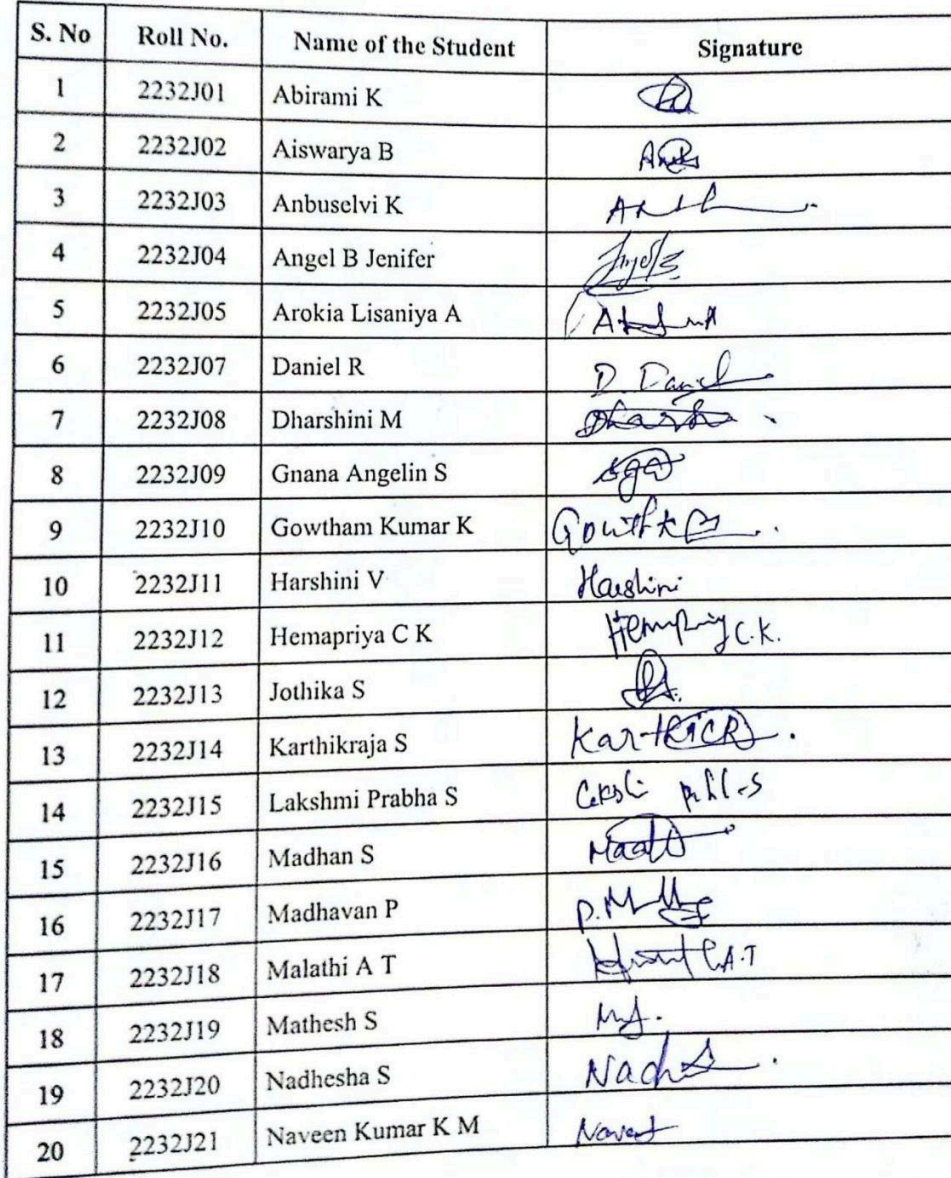 S. No Roll No. Name of the Student Signature
1 2232J01 Abirami K
2 2232J02 Aiswarya B
3 2232J03 Anbuselvi K
4 2232J04 Angel B Jenifer
5 2232J05 Arokia Lisaniya A
6 2232J07 Daniel R D. Daniel
7 2232J08 Dharshini M
8 2232J09 Gnana Angelin S
9 2232J10 Gowtham Kumar K
10 2232J11 Harshini V Harshini
11 2232J12 Hemapriya C K C.K.
12 2232J13 Jothika S
13 2232J14 Karthikraja S
14 2232J15 Lakshmi Prabha S
15 2232J16 Madhan S
16 2232J17 Madhavan P
17 2232J18 Malathi A T
18 2232J19 Mathesh S
19 2232J20 Nadhesha S
20 2232J21 Naveen Kumar K M